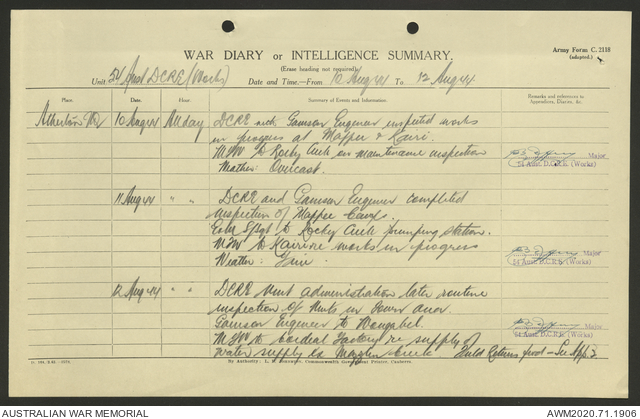 Army Form C. 2118
(adapted.)
WAR DIARY or INTELLIGENCE SUMMARY.
(Erase heading not required)
Unit 54 Aust DCRE (Works) Date and Time—From 10 Aug 44 To 12 Aug 44
Place. Date. Hour. Summary of Events and Information. Remarks and references to Appendices, Diaries, &c.
Atherton 10 Aug 44 All day DCRE and Garrison Engineer inspected works
in progress at Mapee & Kairi.
to Rocky Creek on maintenance inspection
Weather: Overcast.
Major
54 Aust. D.C.R.E. (Works)
11 Aug 44 " " DCRE and Garrison Engineer completed
inspection of Mapee Camps.
to Rocky Creek pumping station.
to Kairi re works in progress
Weather: Fine.
Major
54 Aust. D.C.R.E. (Works)
12 Aug 44 " " DCRE Unit administration later routine
inspection of Huts in Town area.
Garrison Engineer to Wongabel.
to Cordial Factory re supply of
water supply to Creek Field Returns fwd - See App 2
Major
54 Aust. D.C.R.E. (Works)
By Authority: L. F. Johnston, Commonwealth Government Printer, Canberra.
AUSTRALIAN WAR MEMORIAL AWM2020.71.1906